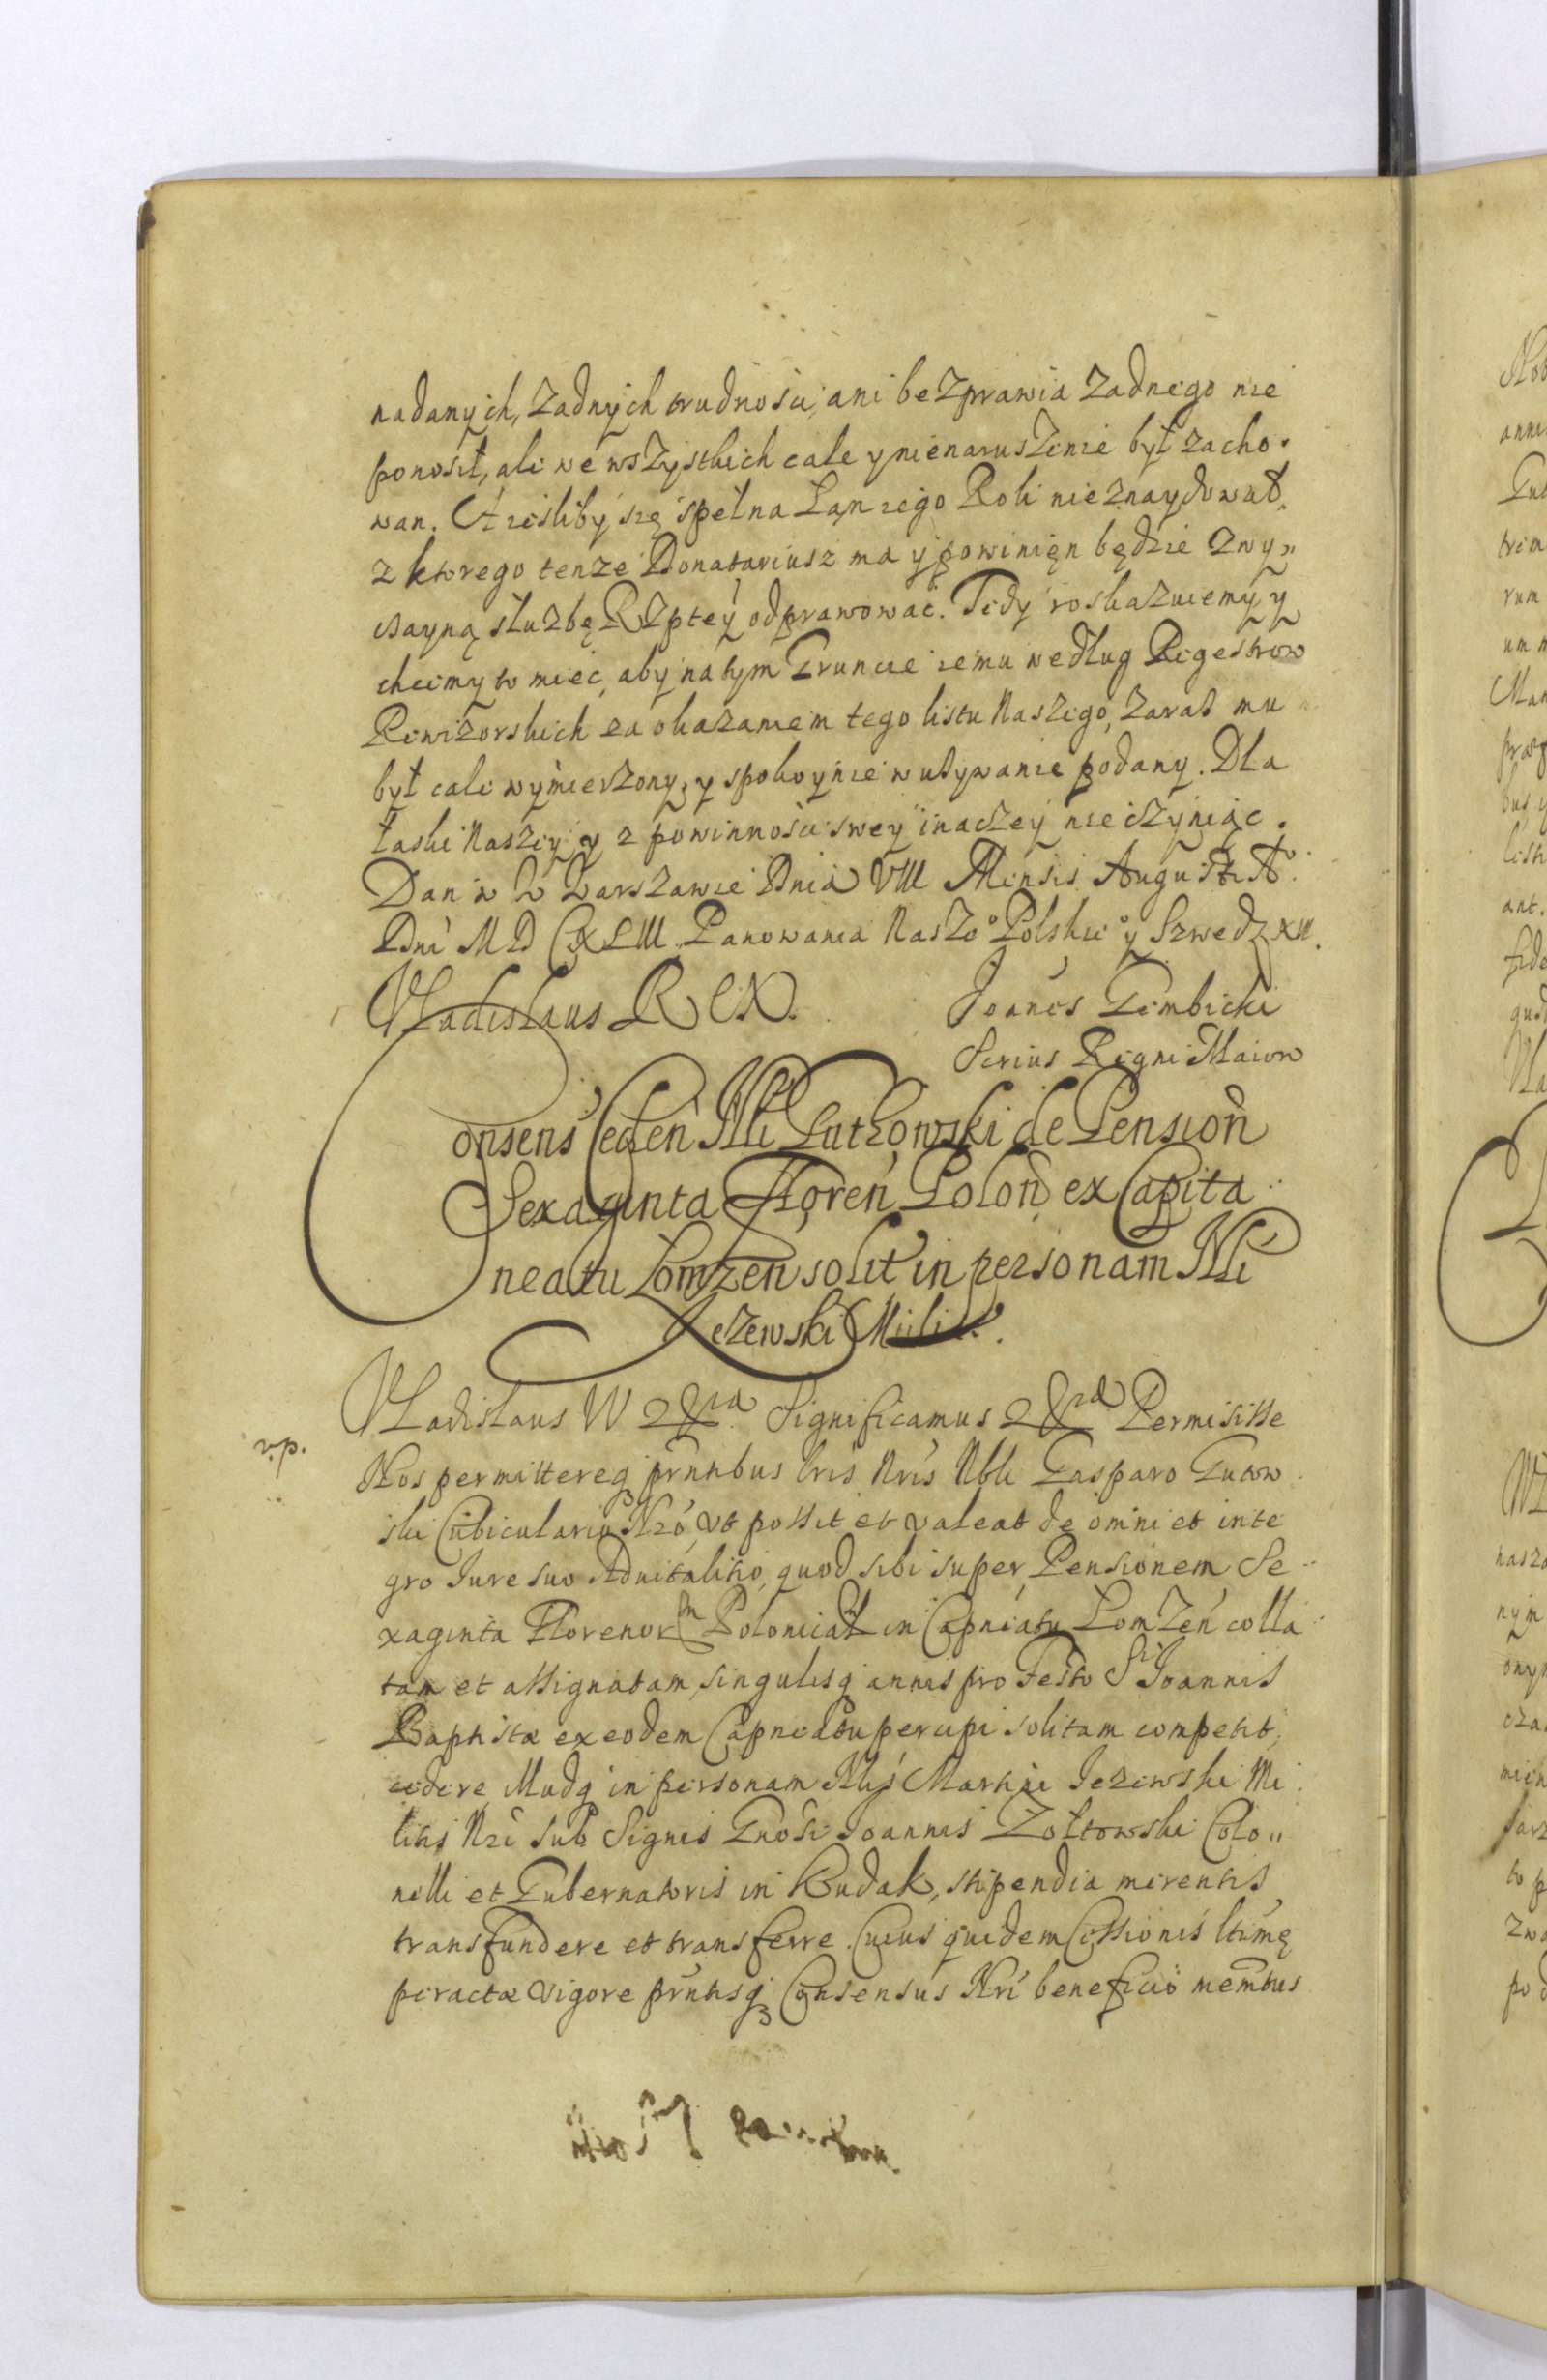 nadanych, Zadnych trudnosci, ani beZprawia Zadnego nie
ponosił, ale we wszystkich cale y nienaruszenie był zacho
wan. A iesliby się spełna Łan iego Roli nieznaydował
z ktorego tenze Donatariusz ma y powinięn będzie Zwy„
czayną służbę RZptey odprawować. Tedy roskazuiemy y
chcemy to mieć, aby na tym Gruncie iemu według Regestrow
Rewizorskich za okazaniem tego listu Naszego, zaraz mu
był cale wymierzony, y spokoynie w używanie podany. Dla
łaski Naszey y z powinności swey inaczey nie czyniąc.
Dan w Warszawie Dnia VIII Mensis Augusti Ao.
Dni MDCXLIII Panowania Naszo Polskieo y Szwedz XII.
Vladislaus REX.
Joanes Gembicki
Scrius Regni Maior
Consens Ceden Nli Gutkowski de Pension
Sexaginta Floren Polon ex Capita
neatu Lomzen solit in personam Nli
Jezewski Milit.
v.p.
Vladislaus IV &ra. Significamus &ra Permisisse
Nos permittereq prntibus lris Nris Nbli Gasparo Gutow
ski Cubiculario Nro, Vt possit et valeat de omni et inte
gro Iure suo Aduitalitio, quod sibi super Pensionem Se
xaginta Florenorm Polonical in Capneatu LomZen colla
tam et assignatam, singulisq annis pro Festo Sti Joannis
Baptistæ ex eodem Capneatu percipi solitam competit,
cedere, Illudq in personam Nlis Martini Jezewski Mi
litis Nri sub Signis Gnosi Joannis Zołtowski Colo„
nelli et Gubernatoris in Kudak, stipendia merentis,
transfundere et transferre. Cuius quidem Cessionis ltime
peractæ vigore prntisq Consensus Nri beneficio memtus